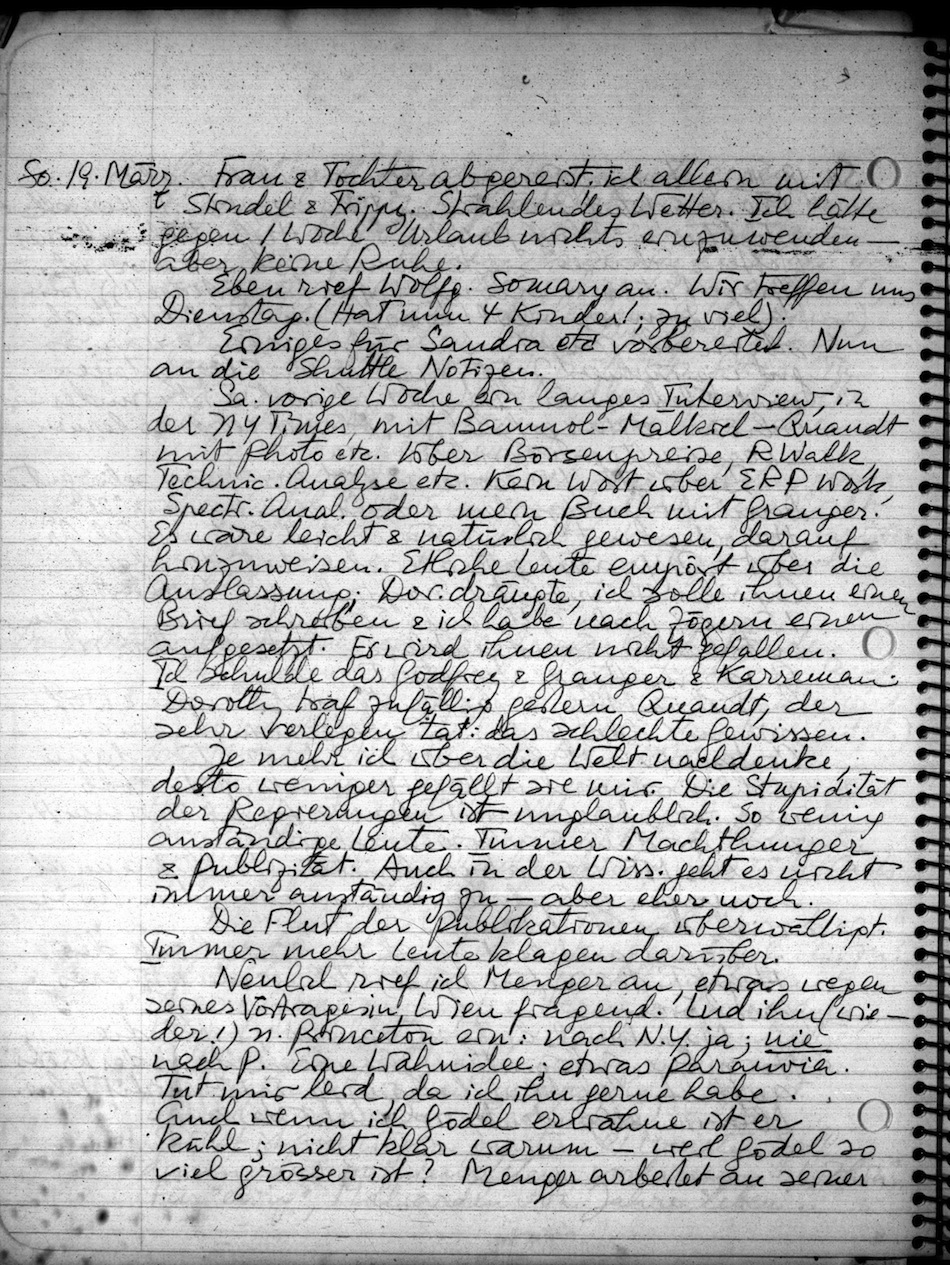 So. 19. März. Frau & Tochter abgereist, ich allein mit
t Strudel & Trippy. Strahlendes Wetter. Ich hätte
gegen 1 Woche Urlaub nichts einzuwenden —
aber keine Ruhe.
Eben rief Wolfg. Somary an. Wir treffen uns
Dienstag. (Hat nun 4 Kinder!; zu viel).
Einiges für Sandra etc vorbereitet. Nun
an die Shuttle Notizen.
Sa. vorige Woche ein langes Interview in
der NY Times mit Baumol - Malkiel - Quandt
mit Photo etc. über Börsenpreise, R Walk
Technic. Analyse etc. Kein Wort über ERP work,
Spectr. Anal. oder mein Buch mit Granger.
Es wäre leicht & natürlich gewesen, darauf
hinzuweisen. Etliche Leute empört über die
Auslassung. Dor. drängte, ich solle ihnen einen
Brief schreiben & ich habe nach Zögern einen
aufgesetzt. Er wird ihnen nicht gefallen.
Ich schulde das Godfrey & Granger & Karreman.
Dorothy traf zufällig gestern Quandt, der
sehr verlegen tat: das schlechte Gewissen.
Je mehr ich über die Welt nachdenke,
desto weniger gefällt sie mir. Die Stupidität
der Regierungen ist unglaublich. So wenig
anständige Leute. Immer Machthunger
& Publizität. Auch in der Wiss. geht es nicht
immer anständig zu — aber eher noch.
Die Flut der Publikationen überwältigt.
Immer mehr Leute klagen darüber.
Neulich rief ich Menger an, etwas wegen
seines Vortrages in Wien fragend. Lud ihn (wie-
der!) n. Princeton ein: nach N.Y. ja; nie
nach P. Eine Wahnidee; etwas Paranoia.
Tut mir leid, da ich ihn gerne habe.
Und wenn ich Gödel erwähne ist er
kühl; nicht klar warum — weil Gödel so
viel grösser ist? Menger arbeitet an seiner